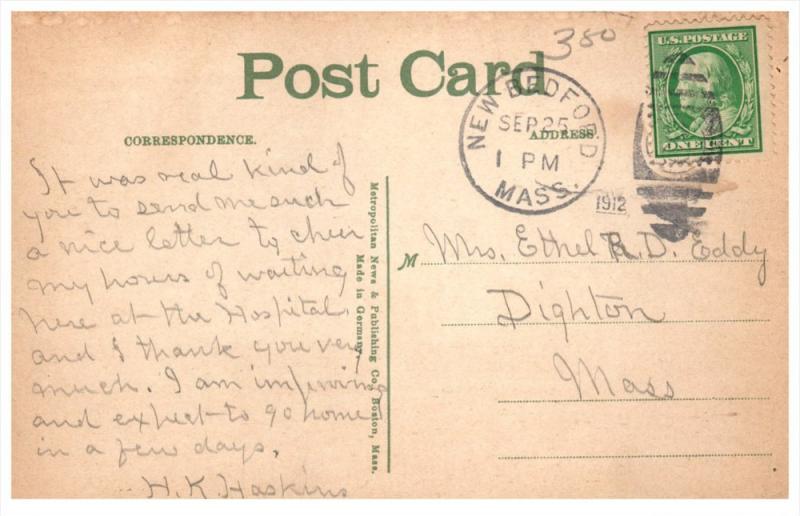 380
U.S. POSTAGE
ONE CENT
Post Card
NEW BEDFORD
SEP 25
1 PM
MASS.
1912
CORRESPONDENCE.
ADDRESS.
It was real kind of
you to send me such
a nice letter to cheer
my hours of waiting
here at the Hospital.
and I thank you very
much. I am improving
and expect to go home
in a few days.
H. K. Haskins
Metropolitan News & Publishing Co., Boston, Mass.
Made in Germany.
M Mrs. Ethel R. D. Eddy
Dighton
Mass